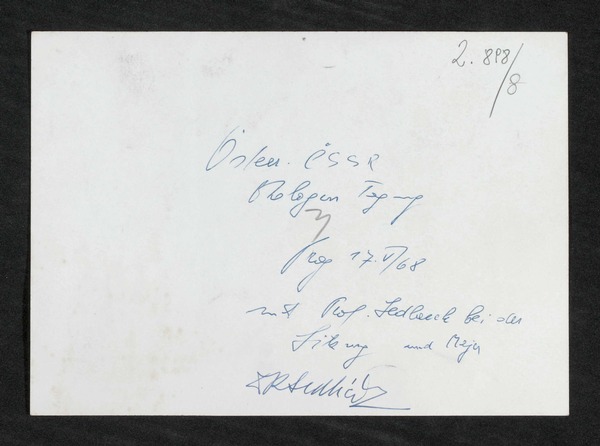 2.898/8
Österr. ČSSR
Tagung
Prag 17.V/68
mit Prof. Sedlacek bei der
Sitzung und